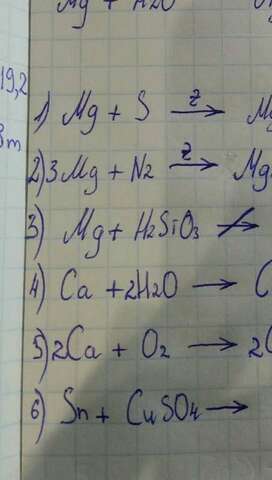 Mg + H2O
19,2
1) Mg + S → M
2) 3Mg + N2 → Mg
3) Mg + H2SiO3 ↛
4) Ca + 2H2O → C
5) 2Ca + O2 → 2C
6) Sn + CuSO4 →